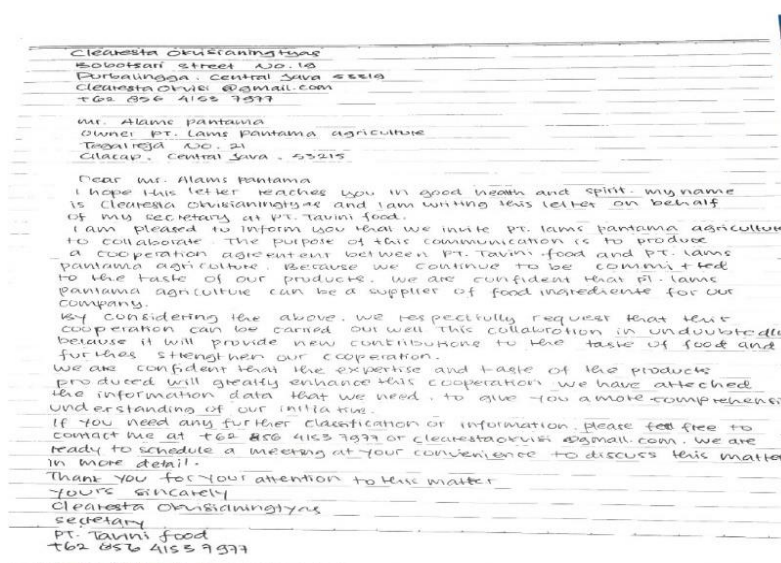 Clearesta Okvisianingtyas
Bobotsari street No. 19
Purbalingga. Central Java 53319
Clearesta Okvisi @gmail.com
+62 856 4153 7977
Mr. Alams pantama
Owner PT. Lams Pantama agriculture
Tegalreja No. 21
Cilacap. Central Java. 53215
Dear Mr. Alams Pantama
I hope this letter reaches you in good health and spirit. My name
is Clearesta Okvisianingtyas and I am writing this letter on behalf
of my secretary at PT. Tavini food.
I am pleased to inform you that we invite PT. Lams pantama agriculture
to collaborate. The purpose of this communication is to produce
a cooperation agreement between PT. Tavini food and PT. Lams
pantama agriculture. Because we continue to be committed
to the taste of our products. we are confident that PT. Lams
pantama agriculture can be a supplier of food ingredients for our
company.
By considering the above. we respectfully request that this
cooperation can be carried out well This collabrotion in
because it will provide new contributions to the taste of food and
furthes strengthen our cooperation.
we are confident that the expertise and taste of the products
produced will greatly enhance this cooperation we have atteched
the information data that we need. to give you a more comprehensi
understanding of our initiative.
If you need any further or information. please feel free to
contact me at +62 856 4153 7977 or clearestaokvisi @gmail.com. we are
ready to schedule a meeting at your convenience to discuss this matter
in more detail.
Thank you for your attention to this matter
Yours sincately
Clearesta Okvisianingtyas
secretary
PT. Tavini food
+62 856 4153 7977